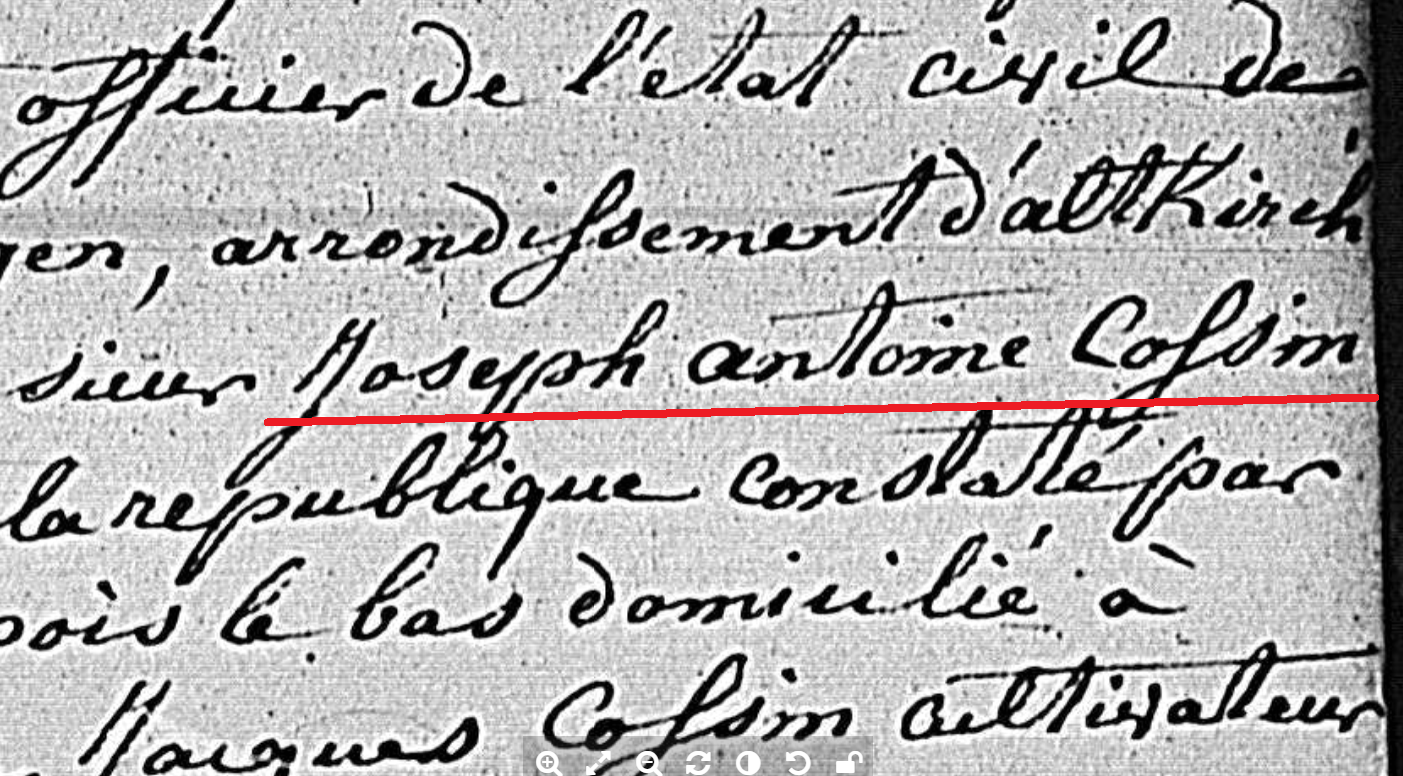 officier de l'état civil de
gen, arrondissement d'altKirch
sieur Joseph antoine Cossin
la republique constaté par
pois le bas domicilié à
Jacques Cossin cultivateur